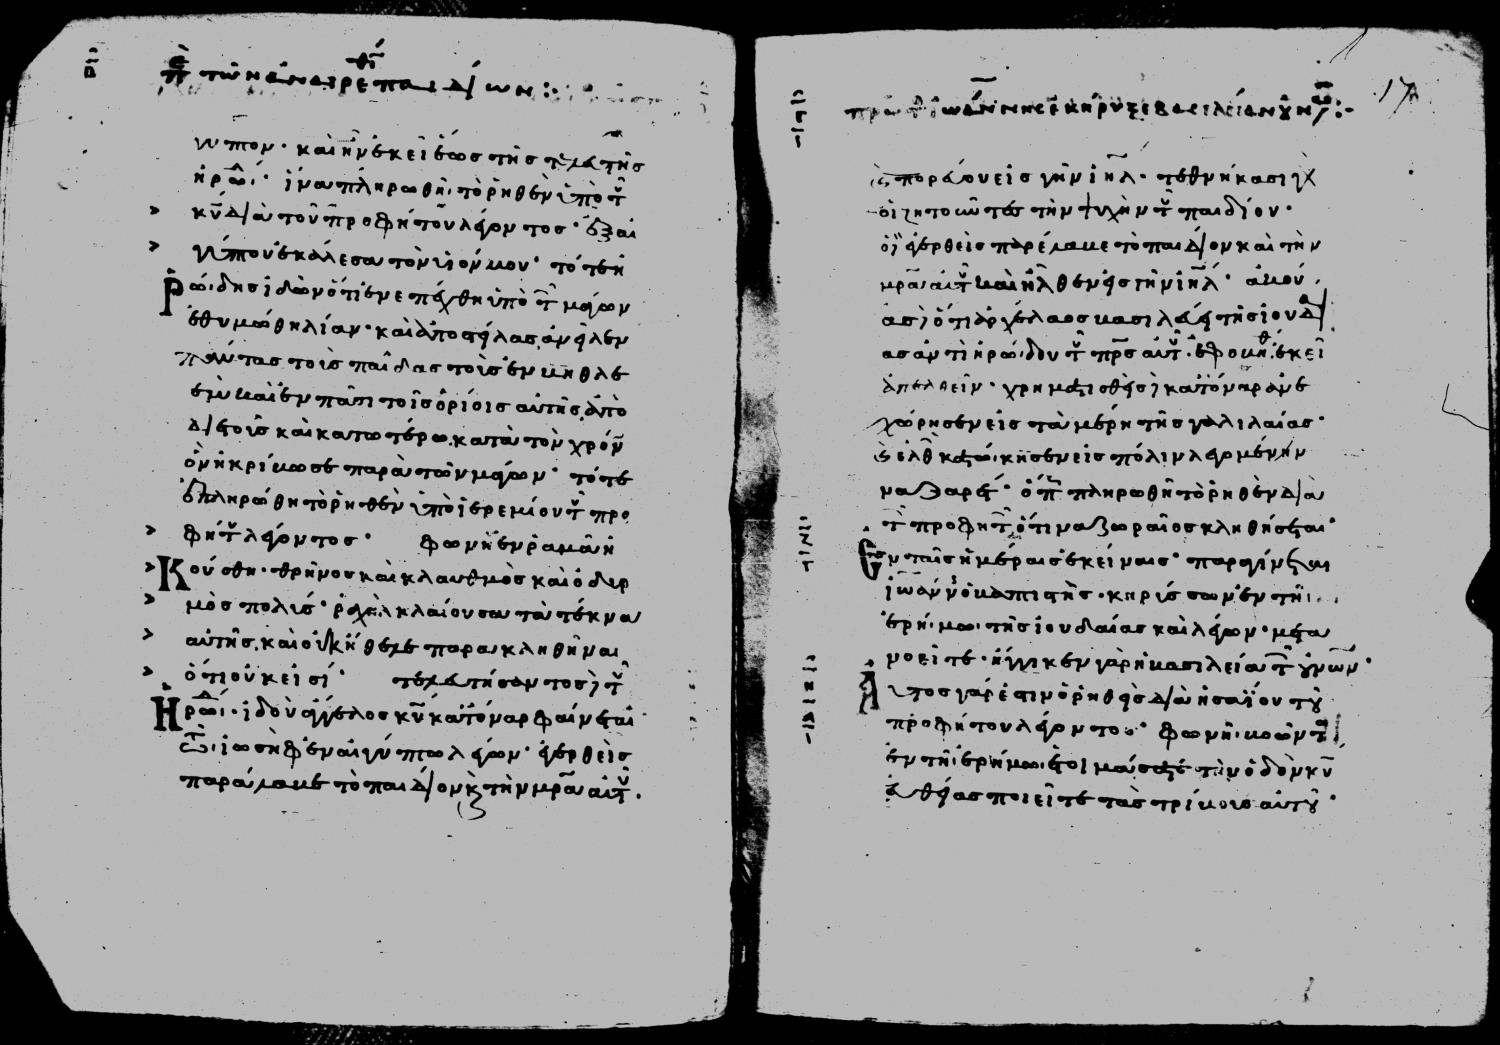 π τῶν ἀναιρεθέντων παιδίων :·
γυπτον· καὶ ἦν ἐκεῖ ἕως τῆς τελευτῆς
ἡρώδου· ἵνα πληρωθῆ τὸ ῥηθὲν ὑπὸ τοῦ
κυ διὰ τοῦ προφήτου λέγοντος· ἐξ αἰ
γύπτου ἐκάλεσα τὸν υἱόν μου· τότε ἡ
ρώδης ἰδὼν ὅτι ἐνεπαίχθη ὑπὸ τῶν μάγων
ἐθυμώθη λίαν· καὶ ἀποστείλας ἀνεῖλεν
πάντας τοὺς παῖδας τοὺς ἐν βηθλε
ὲμ καὶ ἐν πᾶσι τοῖς ὁρίοις αὐτῆς, ἀπὸ
διετοῦς καὶ κατωτέρω, κατὰ τὸν χρόνον
ὃν ἠκρίβωσε παρὰ τῶν μάγων· τότε
ἐπληρώθη τὸ ῥηθὲν ὑπὸ ἱερεμίου τοῦ προ
φήτου λέγοντος· φωνὴ ἐν ῥαμᾶ ἠ
κούσθη· θρῆνος καὶ κλαυθμὸς καὶ ὀδυρ
μὸς πολύς· ῥαχὴλ κλαίουσα τὰ τέκνα
αὐτῆς, καὶ οὐκ ἤθελε παρακληθῆναι
ὅτι οὐκ εἰσί· τελευτήσαντος δὲ τοῦ
ἡρώδου· ἰδοὺ ἄγγελος κυ κατ' ὄναρ φαίνεται
τῶ ἰωσὴφ ἐν αἰγύπτω λέγων· ἐγερθεὶς
παράλαβε τὸ παιδίον κ τὴν μρα αὐτοῦ.
πρῶτον ἰωάννης ἐκήρυξε βασιλείαν οὐνῶν :·
17
κ πορεύου εἰς γῆν ιηλ· τεθνήκασι γὰρ
οἱ ζητοῦντες τὴν ψυχὴν τοῦ παιδίου·
ὁ δὲ ἐγερθεὶς παρέλαβε τὸ παιδίον καὶ τὴν
μρα αὐτοῦ καὶ ἦλθεν εἰς γῆν ιηλ· ἀκού
σας ὅτι ἀρχέλαος βασιλεύει τῆς ἰουδαί
ας ἀντὶ ἡρώδου τοῦ πρς αὐτοῦ· ἐφοβήθη ἐκεῖ
ἀπελθεῖν· χρηματισθεὶς δὲ κατ' ὄναρ ἀνε
χώρησεν εἰς τὰ μέρη τῆς γαλιλαίας·
κ ἐλθὼν κατώκησεν εἰς πόλιν λεγομένην
ναζαρέτ· ὅπως πληρωθῆ τὸ ῥηθὲν διὰ
τῶν προφητῶν, ὅτι ναζωραῖος κληθήσεται·
ἐν ταῖς ἡμέραις ἐκείναις· παραγίνεται
ἰωάννης ὁ βαπτιστὴς· κηρύσσων ἐν τῆ
ἐρήμω τῆς ἰουδαίας καὶ λέγων· μετα
νοεῖτε· ἤγγικεν γὰρ ἡ βασιλεία τῶν οὐνῶν·
οὗτος γάρ ἐστιν ὁ ῥηθεὶς διὰ ἡσαΐου τοῦ
προφήτου λέγοντος· φωνὴ βοῶντος
ἐν τῆ ἐρήμω, ἑτοιμάσατε τὴν ὁδὸν κυ
εὐθείας ποιεῖτε τὰς τρίβους αὐτοῦ·